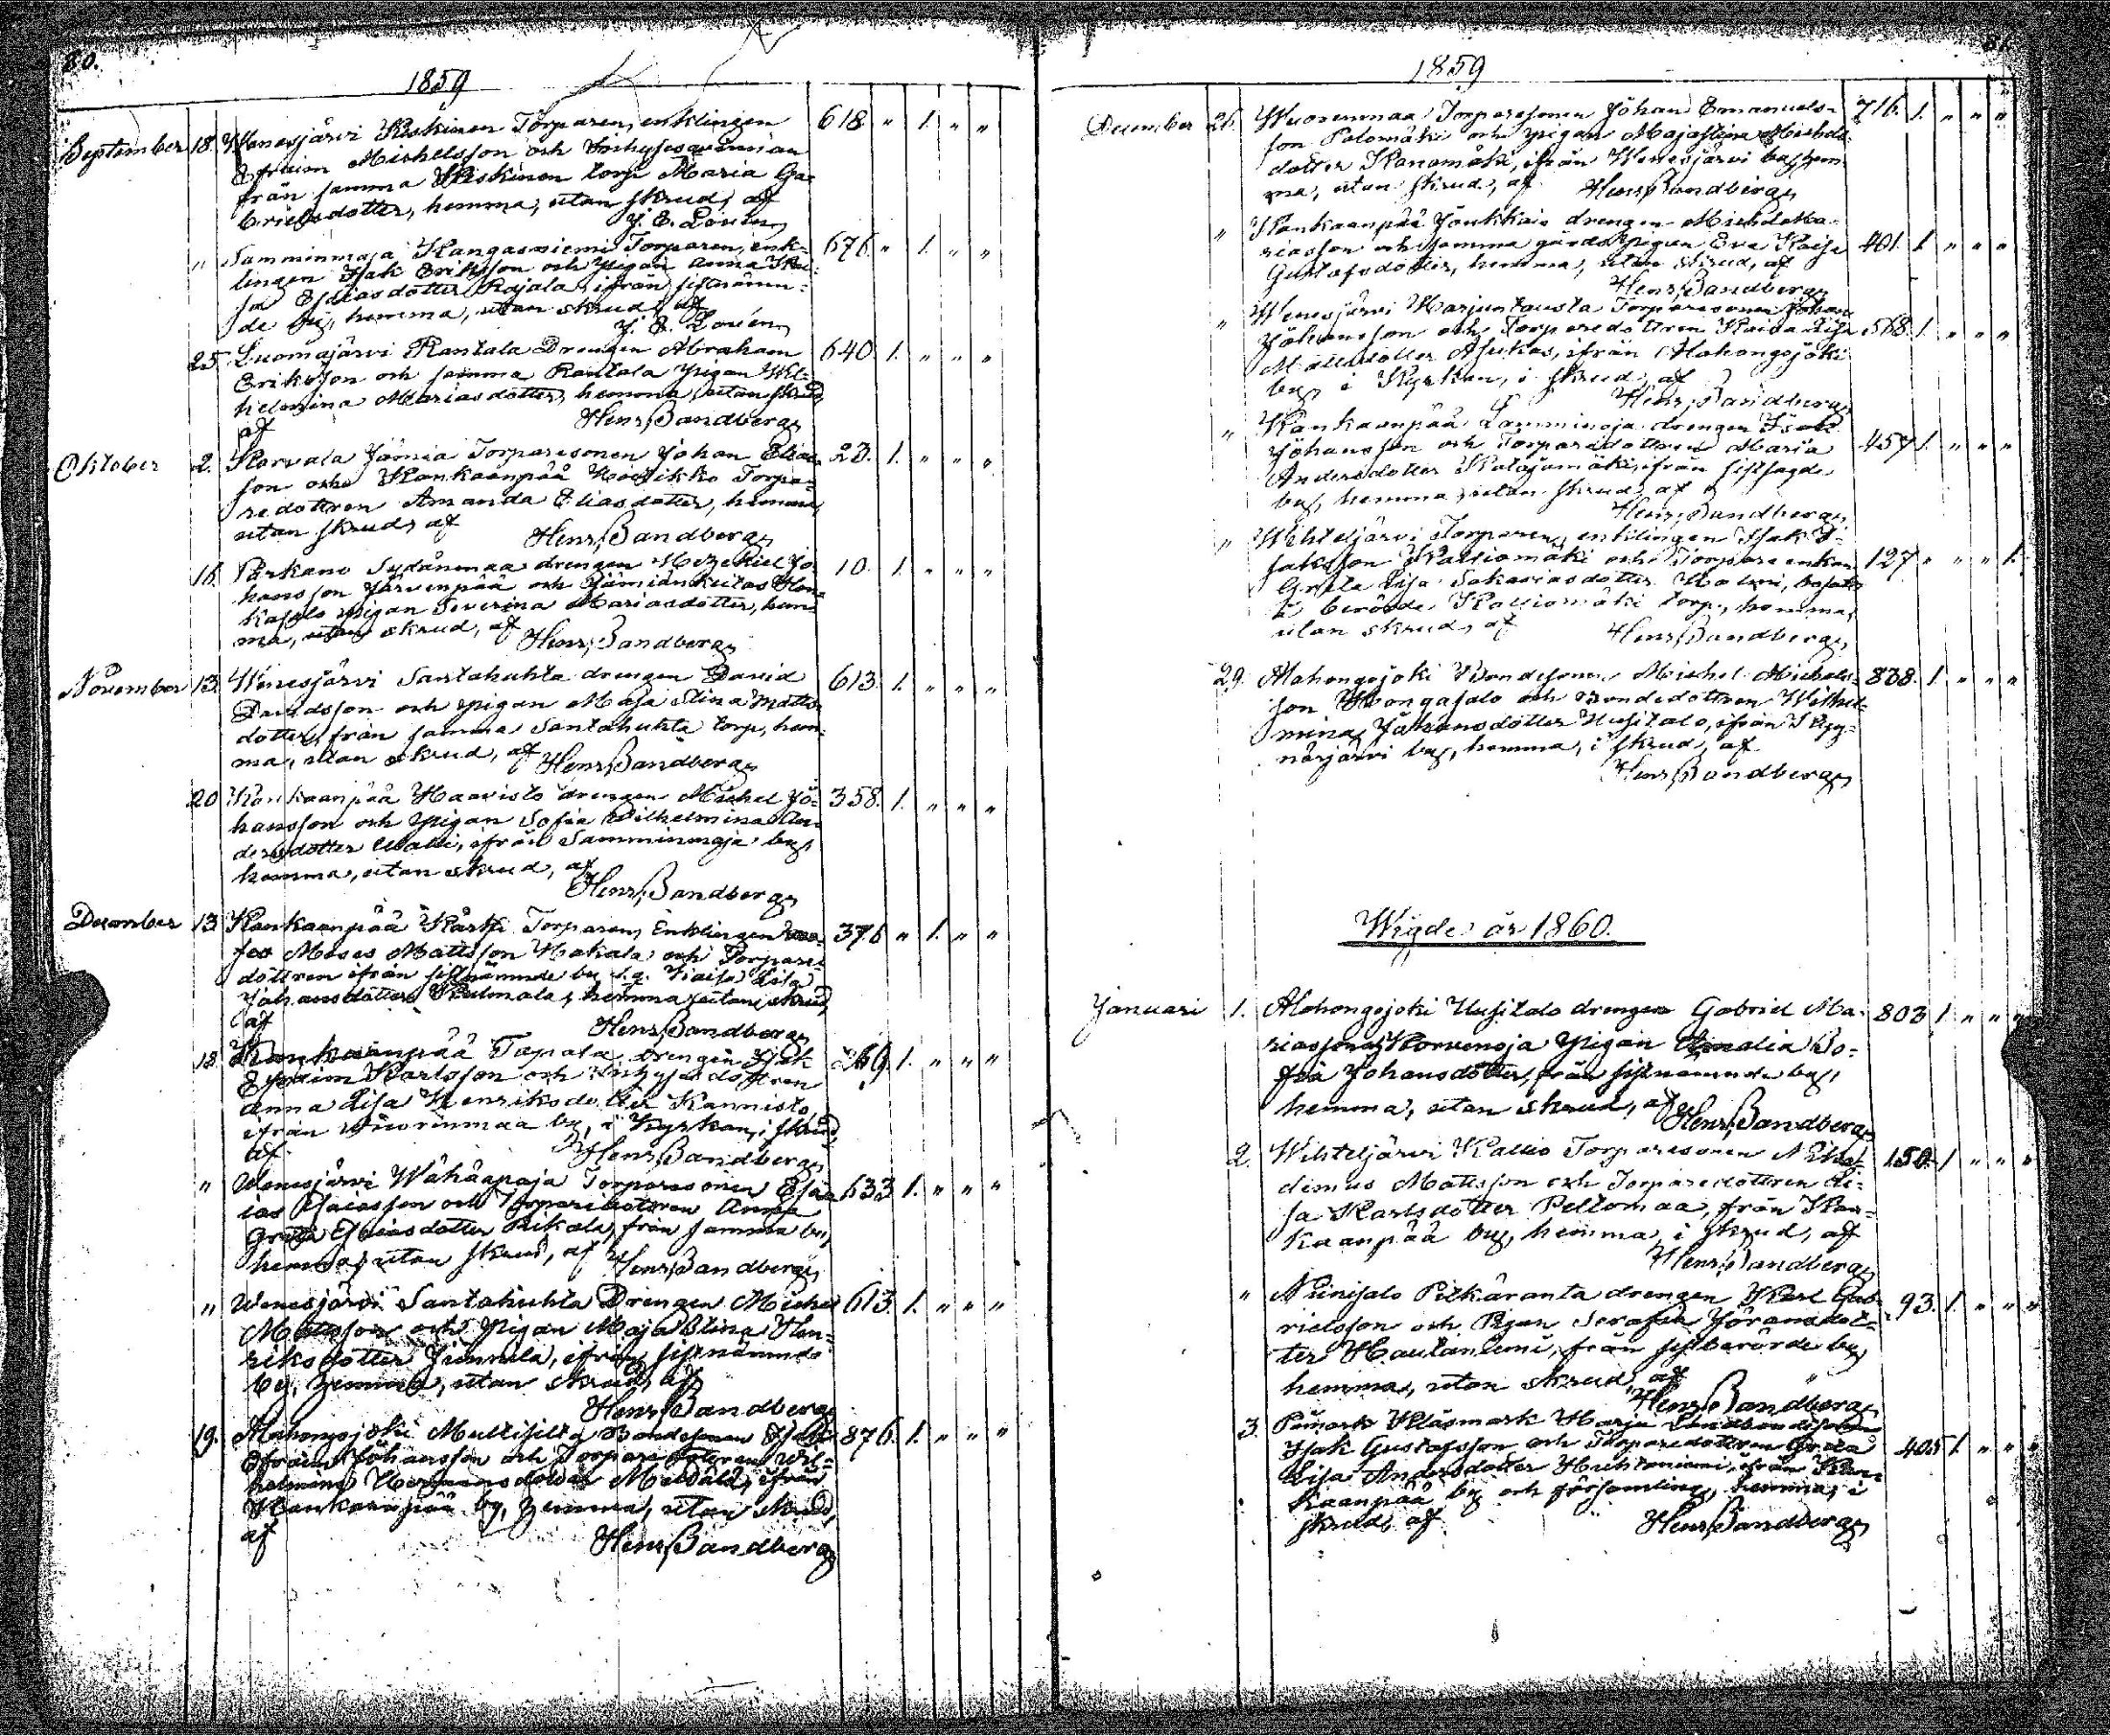 80.
1859
September 18. Wenesjärvi Kiskinen Torparen, enklingen 618 " 1. " "
Efraim Michelsson och Inhysesqvinnan
från samma Kiskinen torp Maria Ga=
brielsdotter, hemma, utan skrud, af
J. E. Lorién
" Samminmaja Kangasniemi Torparen, enk= 676. " 1. " "
lingen Isak Eriksson och pigan Anna
Esaiasdotter Rajala, ifrån sistnämn=
de by, hemma, utan skrud, af
J. E. Lorién
25. Luomajärvi Rantala Drengen Abraham 640 1. " " "
Eriksson och samma Rantala pigan Wil=
helmina Mariasdotter, hemma, utan skrud,
af
Henr. Sandberg
Oktober 2. Karvala Jämiä Torparesonen Johan Elias= 23. 1. " " "
son och Kankaanpää Torpa=
redottren Amanda Eliasdotter, hemma,
utan skrud, af
Henr. Sandberg
16. Parkano Sydänmaa drengen Hezekiel Jo= 10. 1. " " "
hansson Järvenpää och Jämiänkeitas Hon=
kasalo pigan Severina Mariasdotter, hem=
ma, utan skrud, af Henr. Sandberg
November 13. Wenesjärvi Santahuhta drengen David 613 1. " " "
Davidsson och pigan Maja Stina Matts=
dotter, från samma Santahuhta torp, hem=
ma, utan skrud, af Henr. Sandberg
20 Kankaanpää Haavisto drengen Michel Jo= 358. 1. " " "
hansson och pigan Sofia Wilhelmina An=
dersdotter Ualli, ifrån Samminmaja by,
hemma, utan skrud, af
Henr. Sandberg
December 13 Kankaanpää Kärki Torparen, Enklingen 376 " 1. " "
Moses Mattsson Hakala och Torpare=
dottren ifrån sistnämnde by Kaisa Lisa
Johansdotter Kulmala, hemma, utan skrud,
af
Henr. Sandberg
18 Kankaanpää Tapala drengen Isak 269. 1. " " "
Efraim Karlsson och Inhysesdottren
Anna Lisa Henriksdotter Kannisto,
ifrån Wuorenmaa by, i Kyrkan, i skrud,
af
Henr. Sandberg
" Wenesjärvi Wähäapaja Torparesonen Esa= 633 1. " " "
ias Esaiasson och Torparedottren Anna
Greta Esaiasdotter Rikala, från samma by,
hemma, utan skrud, af Henr. Sandberg
" Wenesjärvi Santahuhta Drengen Michel 613. 1. " " "
Mattsson och pigan Maja Stina Hen=
riksdotter Junnila, ifrån sistnämnde
by, hemma, utan skrud, af
Henr. Sandberg
19. Alahongojoki Mullisilta Bondesonen Isak 876. 1. " " "
Efraim Johansson och Torparedottren Wil=
helmina Hermansdotter Mettälä, ifrån
Kankaanpää by, hemma, utan skrud,
af
Henr. Sandberg
1859
December 26. Wuorenmaa Torparesonen Johan Emanuels= 716. 1. " " "
son Palomäki och pigan Majastina Michels=
dotter Kanamäki, ifrån Wenesjärvi by, hem=
ma, utan skrud, af Henr. Sandberg
" Kankaanpää Joukkai drengen Michel Ma=
riasson och samma gårds pigan Eva Kaisa 401. 1. " " "
Gustafsdotter, hemma, utan skrud, af
Henr. Sandberg
" Wenesjärvi Harjuntausta Torparesonen Johan
Johansson och Torparedottren Kaisa Lisa 568. 1. " " "
Mattsdotter Asukas, ifrån Alahongojoki
by, i Kyrkan, i skrud, af
Henr. Sandberg
" Kankaanpää Lamminoja drengen Isak
Johansson och Torparedottren Maria 457 1. " " "
Andersdotter Katajamäki, ifrån sistsagde
by, hemma, utan skrud, af
Henr. Sandberg
" Wihteljärvi Torparen, enklingen Isak I=
saksson Kalliomäki och Torpareenkan 127 " " " 1.
Greta Lisa Sakariasdotter
berörde Kalliomäki torp, hemma,
utan skrud, af Henr. Sandberg
29. Alahongojoki Bondesonen Michel Michels= 838. 1. " " "
son Hongasalo och Bondedottren Wilhel=
mina Johansdotter Uusitalo, ifrån Kyy=
närjärvi by, hemma, i skrud, af
Henr. Sandberg
Wigde år 1860.
Januari 1. Alahongojoki Uusitalo drengen Gabriel Ma= 803 1. " " "
riasson, Korvenoja pigan Amalia So=
fia Johansdotter, från sistnämnde by,
hemma, utan skrud, af
Henr. Sandberg
2. Wihteljärvi Kallio Torparesonen Niko= 150. 1 " " "
dimus Mattsson och Torparedottren Li=
sa Karlsdotter Peltomaa, från Kan=
kaanpää by, hemma, i skrud, af
Henr. Sandberg
" Niinisalo Pitkäranta drengen Karl Gab= 93. 1. " " "
rielsson och Pigan Serafia Göransdot=
ter Hautaniemi, från sistberörde by,
hemma, utan skrud, af
Henr. Sandberg
3. Påmark Klåsmark Harju Landbondesonen
Isak Gustafsson och Torparedottren Greta 405 1. " " "
Lisa Andersdotter Huhtaniemi, ifrån Kan=
kaanpää by och församling, hemma, i
skrud, af Henr. Sandberg